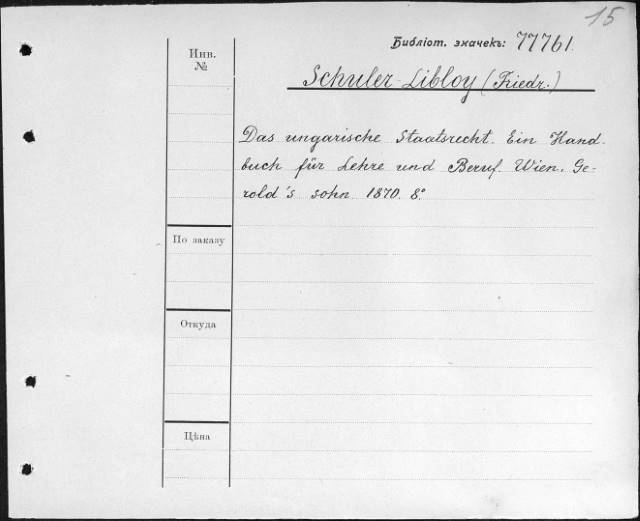 15
Библіот. значекъ: 77761.
Инв.
№
Schuler-Libloy (Friedr.)
Das ungarische Staatsrecht. Ein Hand-
buch für Lehre und Beruf. Wien. Ge-
rold's sohn 1870. 8°
По заказу
Откуда
Цѣна